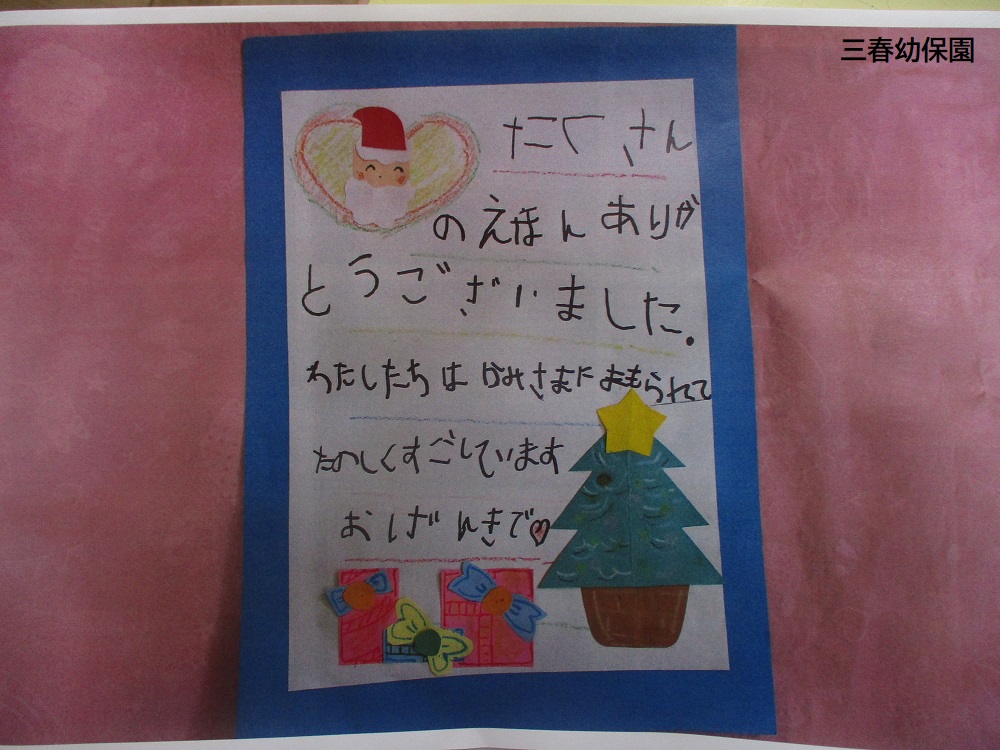 三春幼保園
たくさん
のえほんありが
とうございました.
わたしたちは かみさまに まもられて
たのしくすごしています
おげんきで